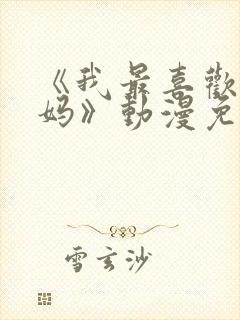 《我最喜歡
妈》動漫免
雪玄沙